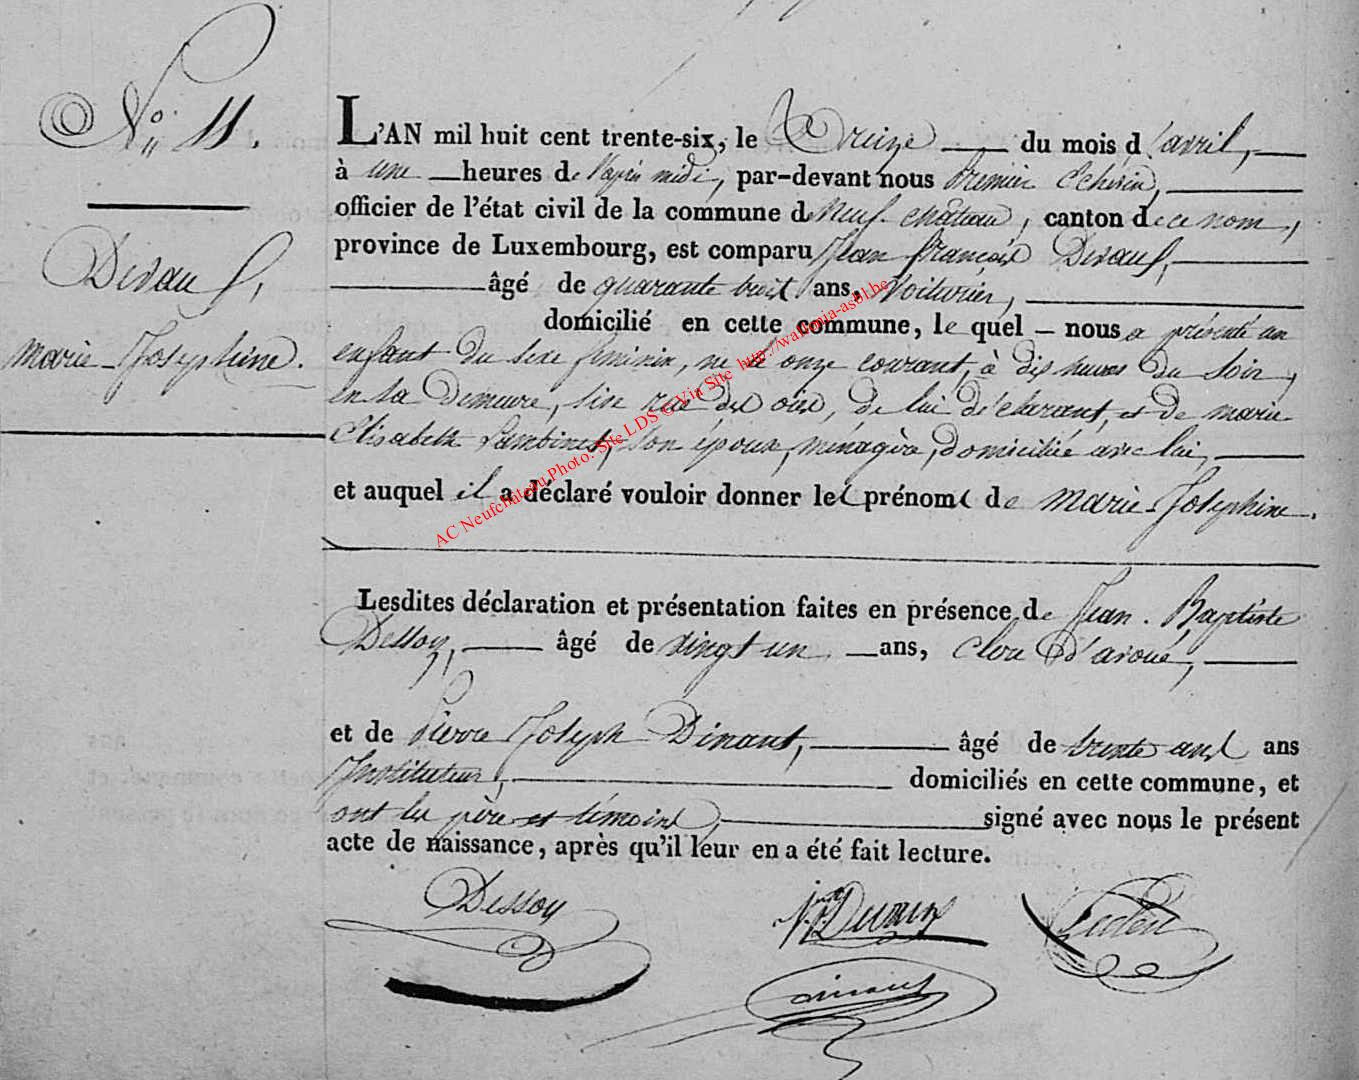 N° 11.
Devaux,
Marie-Josephine.
L'AN mil huit cent trente-six, le Treize du mois d'avril,
à une heures de l'après midi, par-devant nous Premier Echevin,
officier de l'état civil de la commune de Neufchâteau, canton de ce nom,
province de Luxembourg, est comparu Jean François Devaux,
âgé de quarante huit ans, Voiturier,
domicilié en cette commune, le quel nous a présenté un
enfant du sexe féminin, né le onze courant, à dix heures du soir,
en sa demeure, sise rue des oies, de lui déclarant, et de marie
Elisabeth Lambinet, son épouse, ménagère, domiciliée avec lui,
et auquel il a déclaré vouloir donner les prénoms de Marie-Josephine.
Lesdites déclaration et présentation faites en présence de Jean-Baptiste
Dessoy, âgé de vingt un ans, clerc d'avoué,
et de Pierre Joseph Dinant, âgé de trente ans ans
Instituteur, domiciliés en cette commune, et
ont les père et témoins, signé avec nous le présent
acte de naissance, après qu'il leur en a été fait lecture.
Dessoy Devaux
Dinant
AC Neufchateau Photo: Site LDS © Via Site http://wallonia-asbl.be